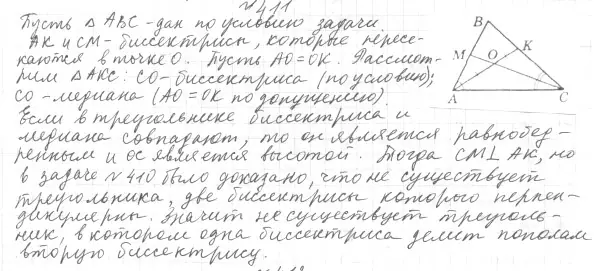 №411
Пусть △ABC - дан по условию задачи
AK и CM - биссектрисы, которые пересе-
каются в точке O. Пусть AO=OK. Рассмот-
рим △AKC: CO-биссектриса (по условию);
CO-медиана (AO=OK по допущению).
Если в треугольнике биссектриса и
медиана совпадают, то он является равнобед-
ренным и ос является высотой. Тогда CM⊥AK, но
в задаче №410 было доказано, что не существует
треугольника, две биссектрисы которого перпен-
дикулярны. Значит не существует треуголь-
ник, в котором одна биссектриса делит пополам
вторую биссектрису.
B
M
O
K
A
C